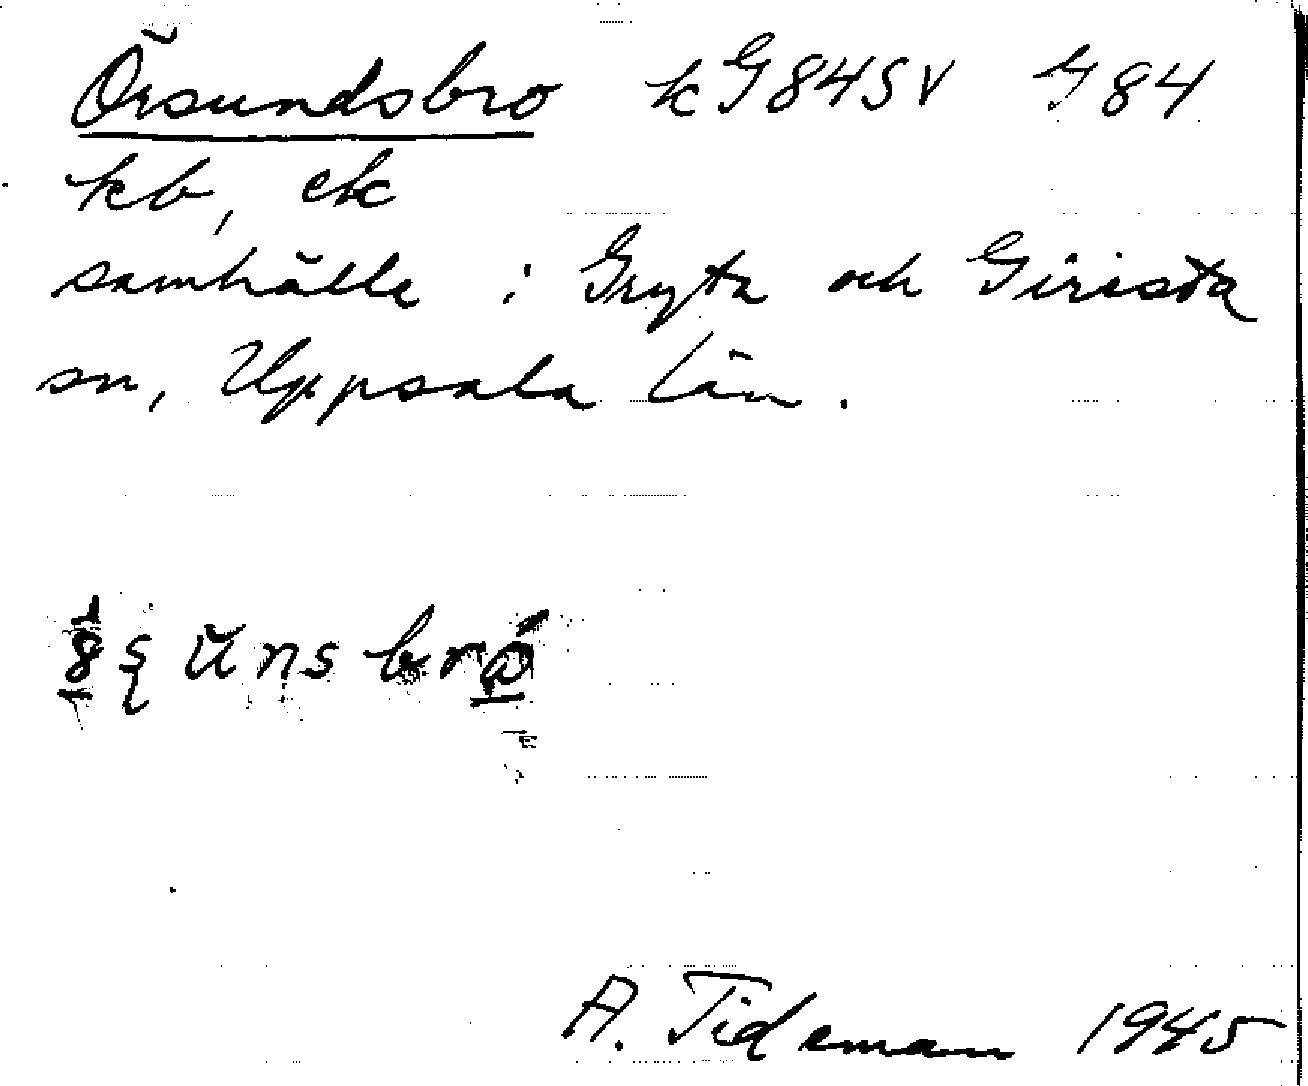 Örsundsbro kG84SV G84
kb, ek
samhälle i Gryta och Giresta
sn, Uppsala län.
A. Tideman 1945